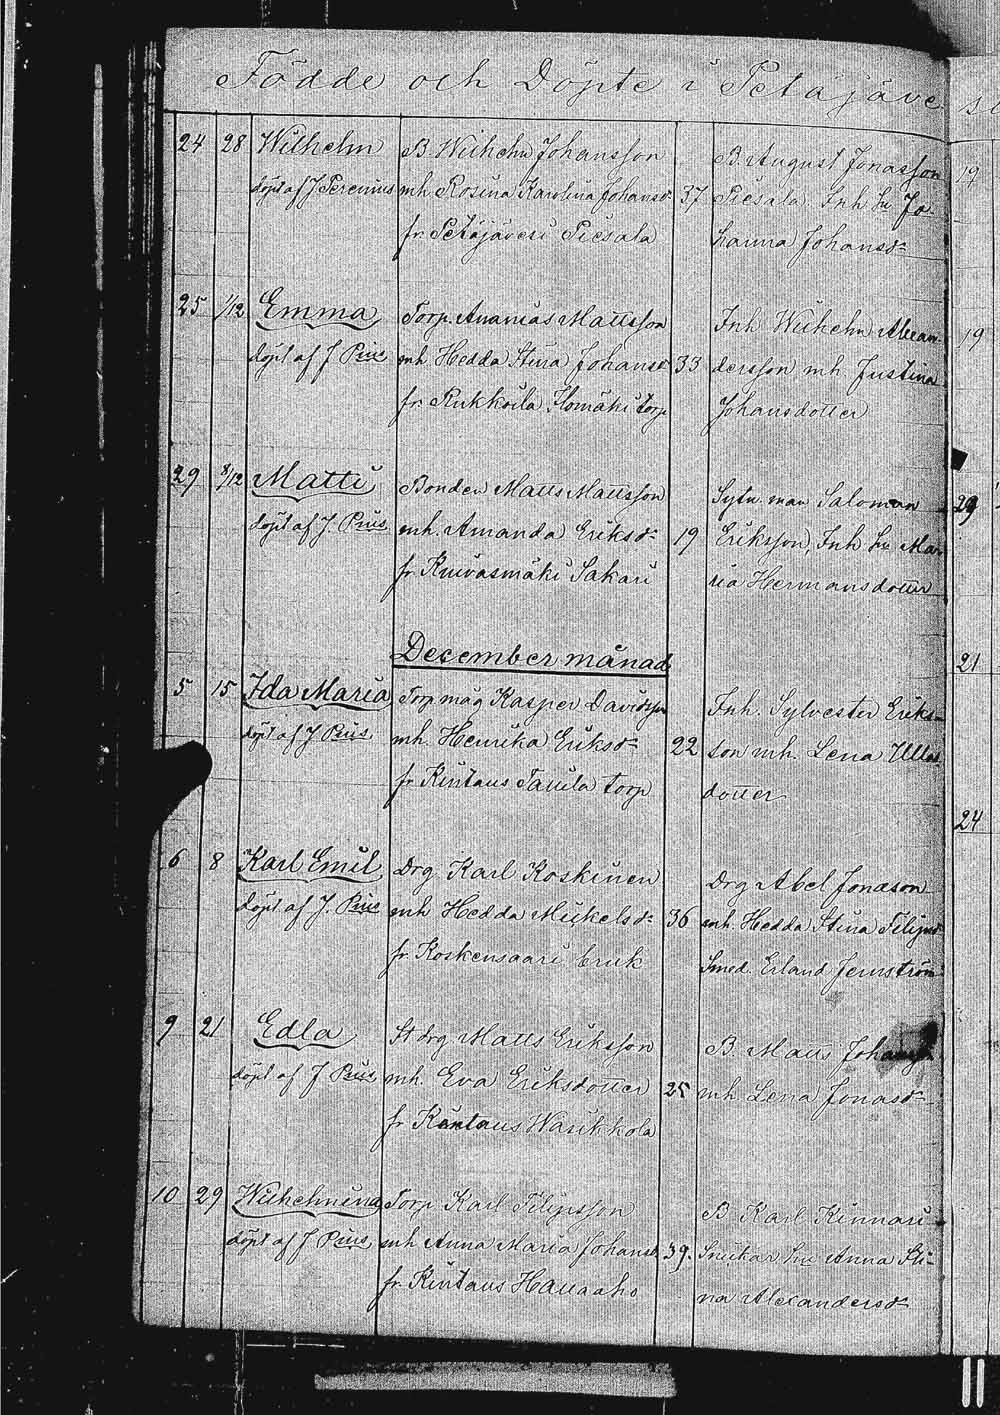 Födde och Döpte i Petäjäve
24 28 Wilhelm B. Wilhelm Johansson B. August Jonasson
döpt af J Perenius mh. Rosina Karolina Johansdr 37 Piesala. Inh hu Jo-
fr Petäjävesi Piesala hanna Johansdr
25 1/12 Emma Torp. Ananias Mattsson Inh Wilhelm Alexan-
döpt af J Prius mh Hedda Stina Johansdr 33 dersson mh Justina
fr. Kukkoila Ilomäki torp Johansdotter
29 8/12 Matti Bonden Matts Mattsson Sytn. man Salomon
döpt af J. Prius mh. Amanda Eriksdr 19 Eriksson, Inh hu Ma-
fr Kuivasmäki Sakari ria Hermansdotter
December månad
5 15 Ida Maria Torp måg Kasper Davidsson Inh. Sylvester Eriks-
döpt af J Prius. mh. Henrika Eriksdr 22 son mh. Lena Ulla
fr Kintaus Tauila torp dotter
6 8 Karl Emil Drg Karl Koskinen Drg Abel Jonasson
döpt af J. Prius mh Hedda Mickelsdr 36 mh. Hedda Stina Filipsdr
fr. Koskensaari bruk Smed. Erland Jernström
9 21 Edla St drg Matts Eriksson B. Matts Johansson
döpt af J Prius mh. Eva Eriksdotter 25 mh Lena Jonasdr
fr Kintaus Warikkola
10 29 Wilhelmina Torp Karl Filipsson B Karl Kinnari
döpt af J Prius mh Anna Maria Johansdr 39. Snickar hu Anna Sti-
fr Kintaus Hauaaho na Alexandersdr
19
19
29
21
24